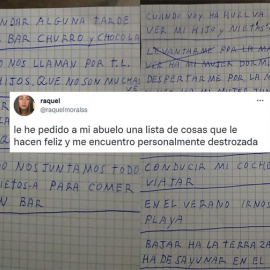 NDAR ALGUNA TARDE
BAR CHURRO Y CHOCOLA
NOS LLAMAN POR T.L.
HIJOS, QUE NO SON MUCHA
CUANDO VOY HA HUELVA
VER MI HIJO Y NIETAS
LEVANTARME POR LA MA
VER HA MI MUJER DORMI
DESPERTARME POR LA
raquel
@raquelmoralss
le he pedido a mi abuelo una lista de cosas que le
hacen feliz y me encuentro personalmente destrozada
O NOS JUNTAMOS TODO
NIETOS-A PARA COMER
N BAR
CONDUCIR MI COCHE
VIAJAR
EN EL VERANO IRNOS
PLAYA
BAJAR HA LA TERRAZA
HA DESAYUNAR EN EL